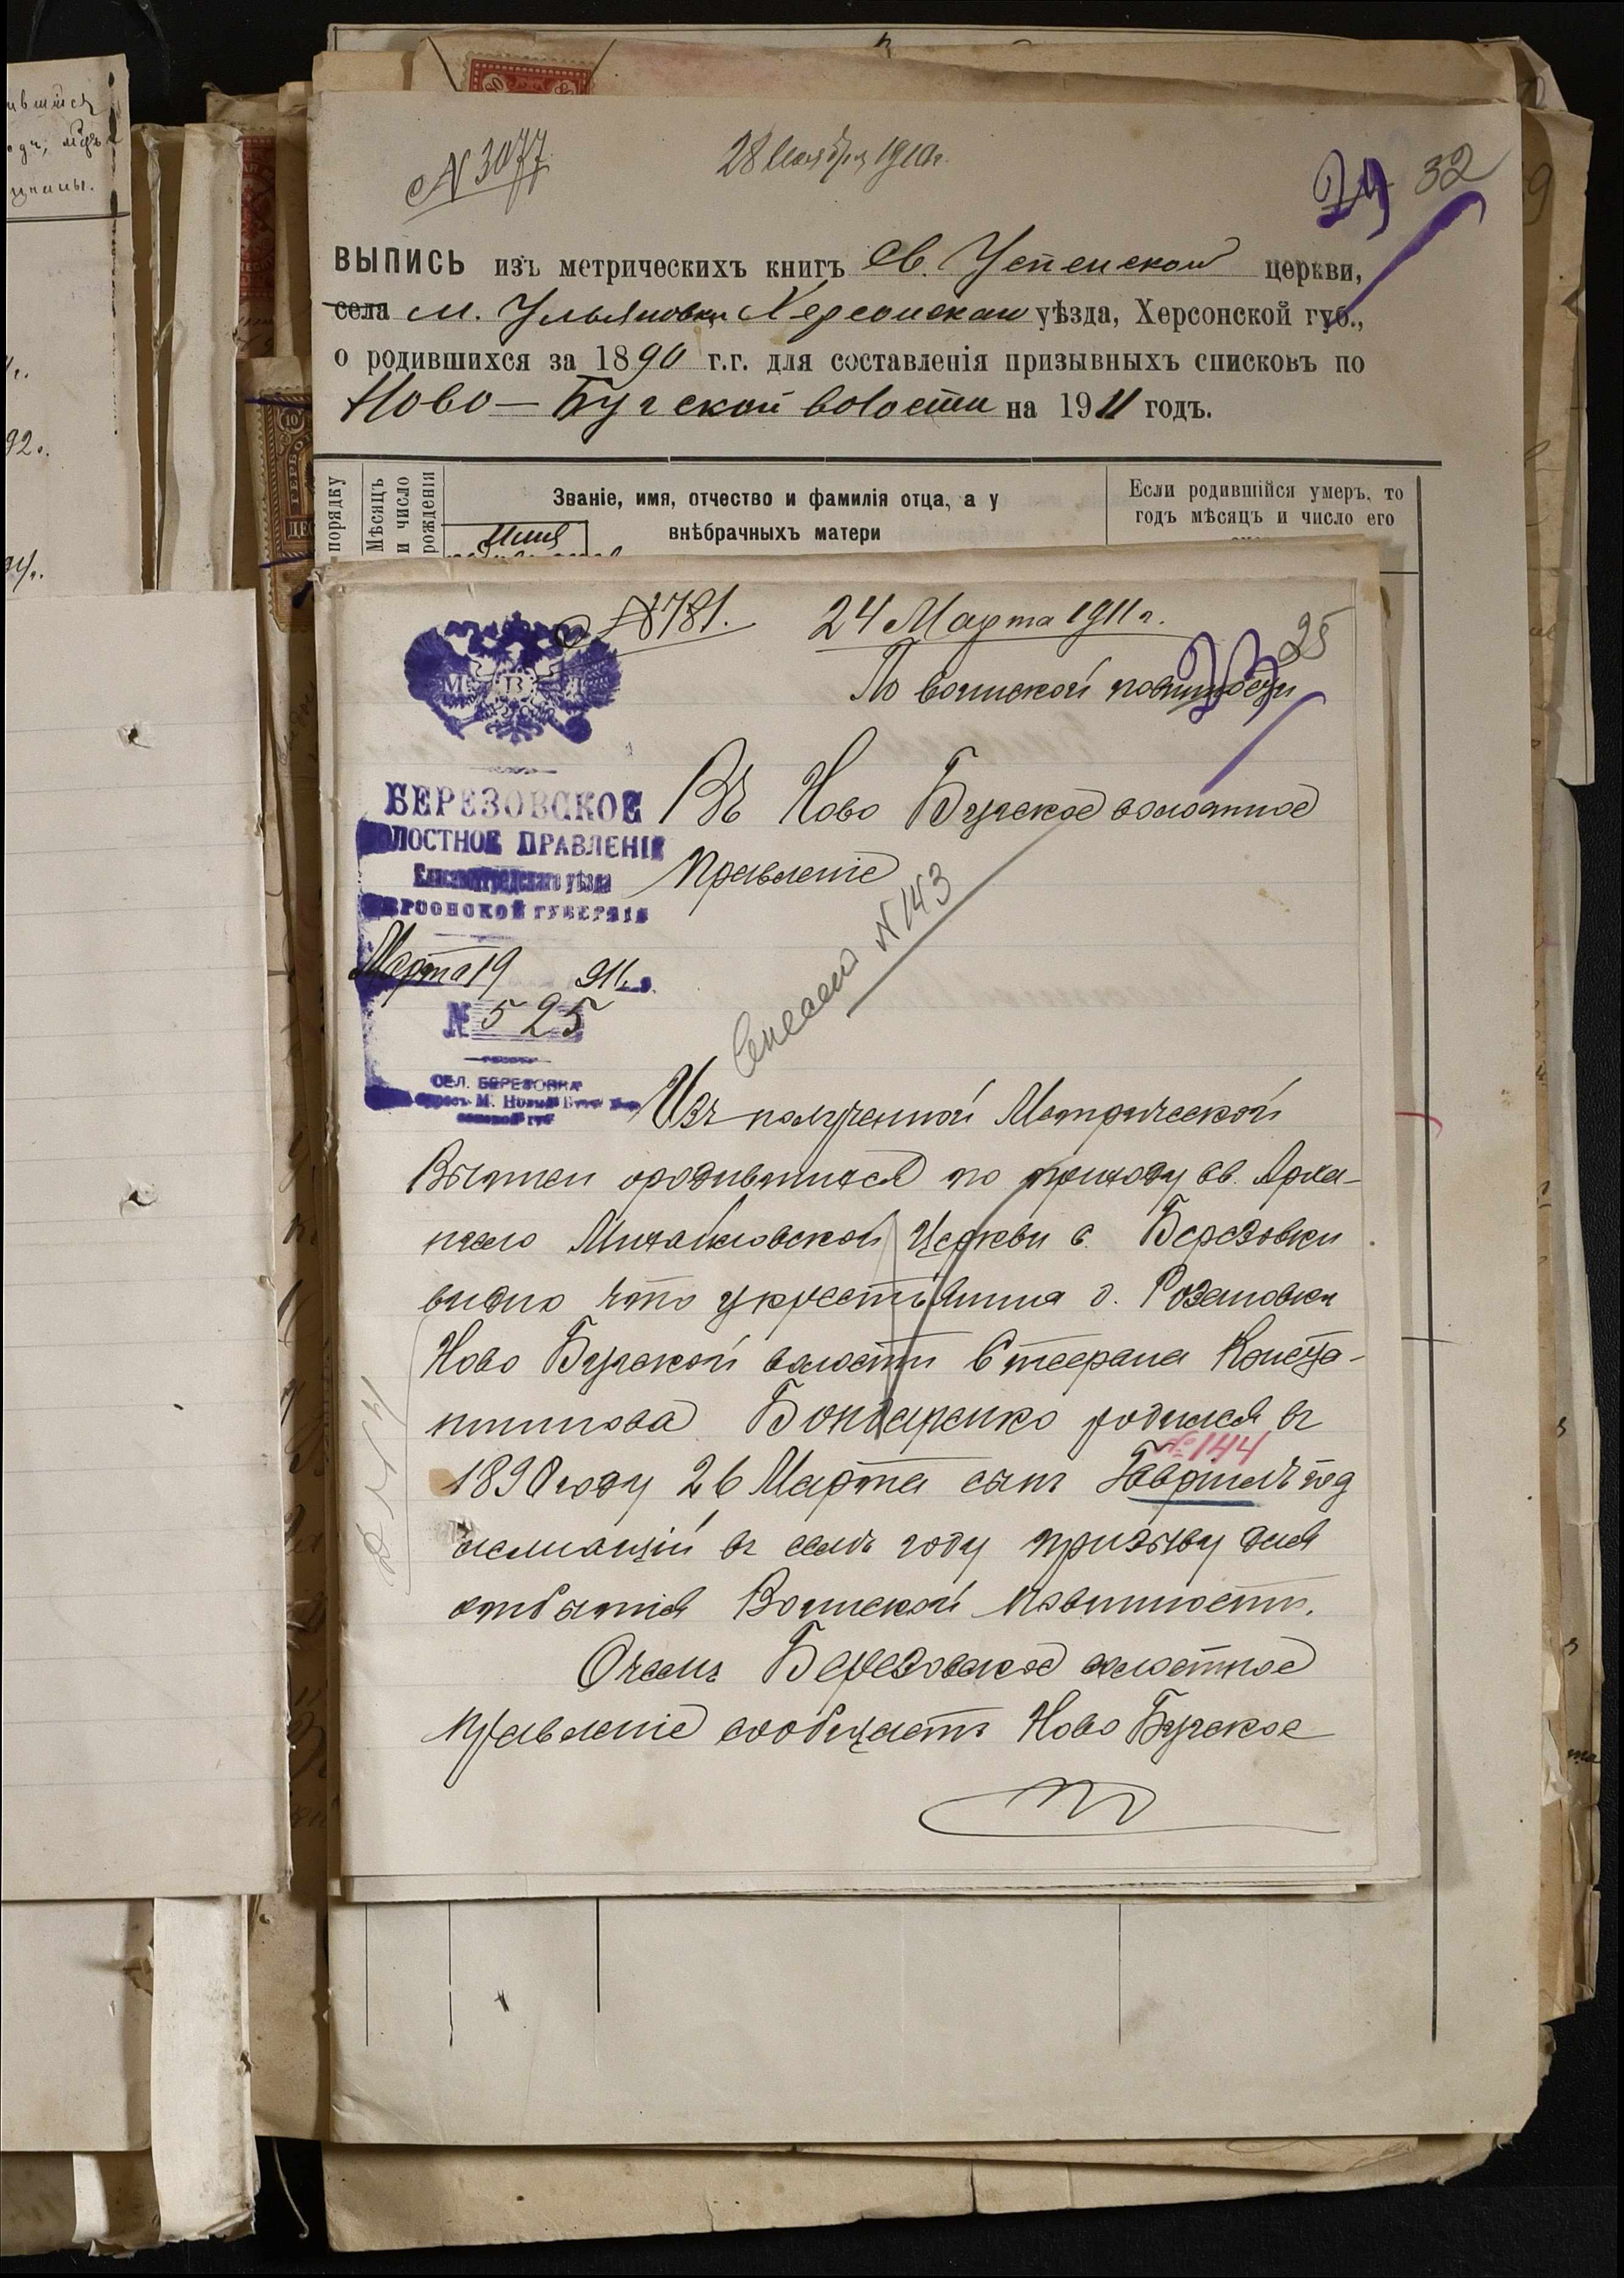 вшійся
годъ, мѣся
ичины.
92г.
№ 3077.
28 Ноября 1910г.
29 32
ВЫПИСЬ изъ метрическихъ книгъ Св. Успенской церкви,
села м. Ульяновки Херсонскаго уѣзда, Херсонской губ.,
о родившихся за 1890 г.г. для составленія призывныхъ списковъ по
Ново-Бугской волости на 1911 годъ.
порядку
Мѣсяцъ и число рожденія
Имя
Званіе, имя, отчество и фамилія отца, а у
внѣбрачныхъ матери
Если родившійся умеръ, то
годъ мѣсяцъ и число его
№ 781. 24 Марта 1911 г.
25
По воинской повинности
М В Д
БЕРЕЗОВСКОЕ
ВОЛОСТНОЕ ПРАВЛЕНІЕ
Елисаветградскаго уѣзда
ХЕРСОНСКОЙ ГУБЕРНІИ
Марта 19 911 г.
№ 525
СЕЛ. БЕРЕЗОВКА
Адресъ М. Новый Бугъ Хер
сонской губ
Въ Ново Бугское волостное
Правленіе
Внесенъ № 143
Изъ полученной Метрической
Выписи о родившихся по приходу св. Арха-
нгело Михайловской Церкви с. Березовки
видно что у крестьянина д. Розановки
Ново Бугской волости Стефана Конста-
нтинова Бондаренко родился въ
№ 144
1890 году 26 Марта сынъ Гавріилъ под
лежащій въ семъ году призыву для
отбытія Воинской повинности.
О чемъ Березовское волостное
правленіе сообщаетъ Ново Бугское